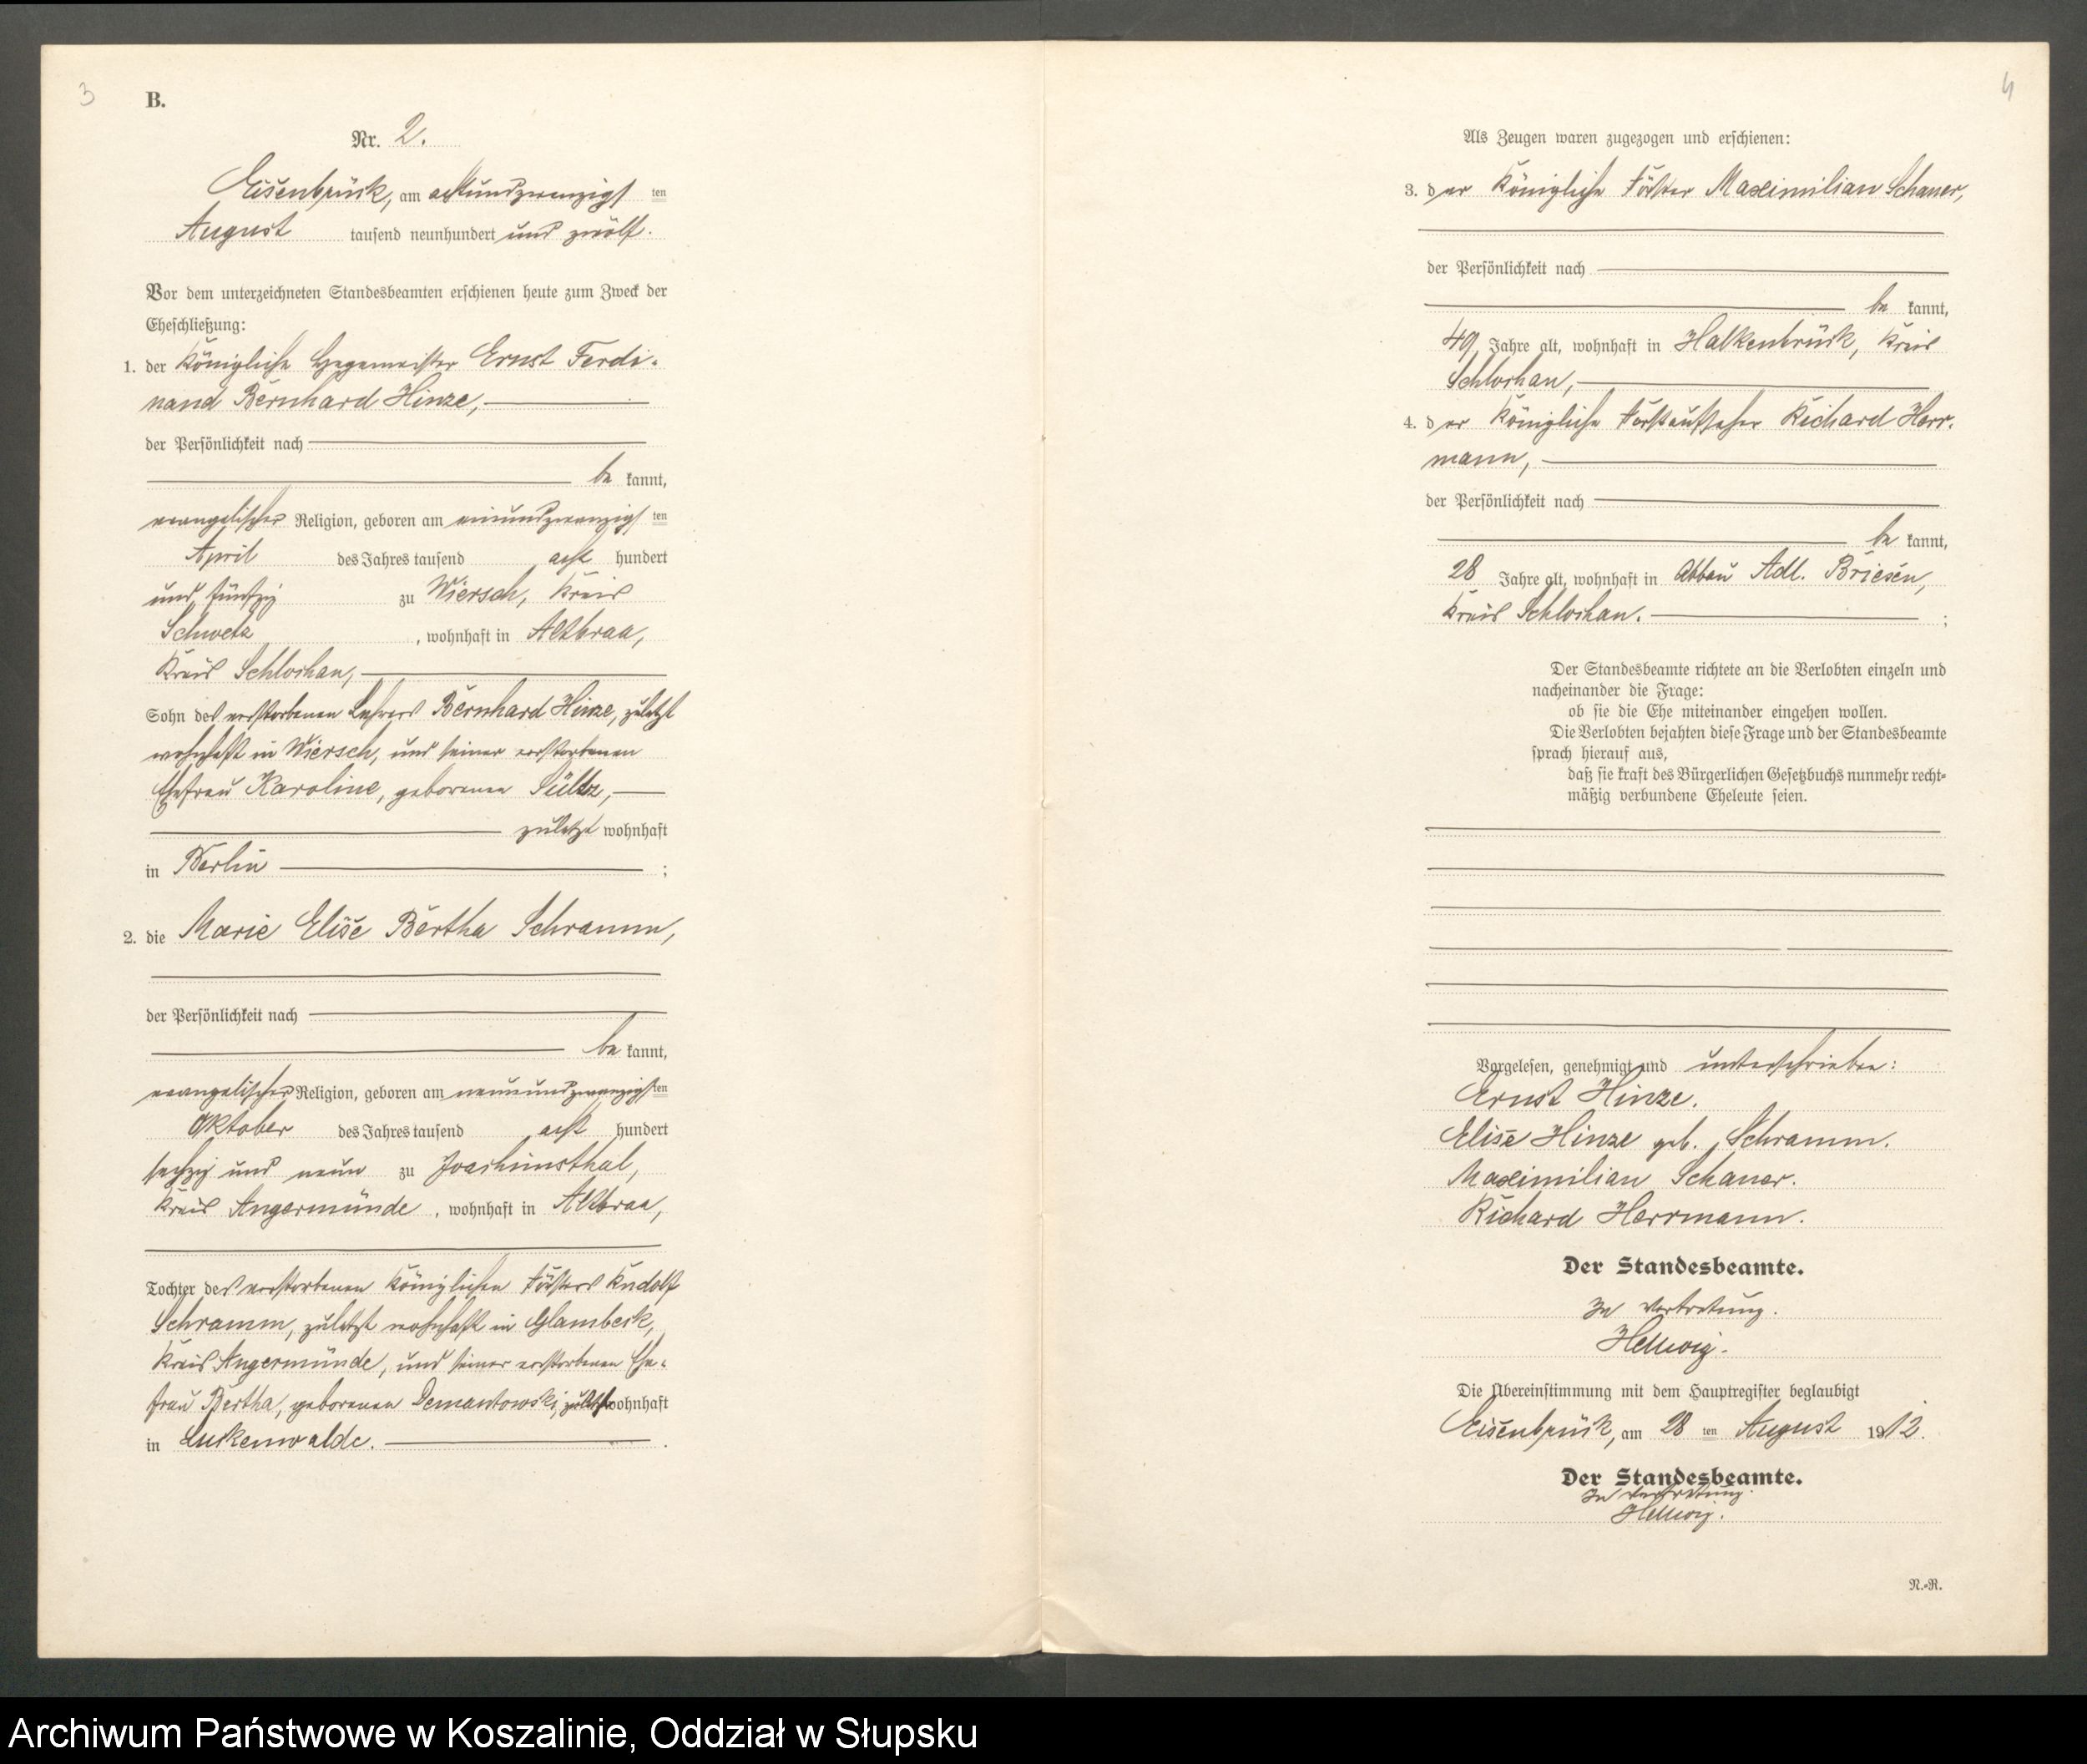 3
B.
Nr. 2.
Eisenbrück, am achtundzwanzigsten
August tausend neunhundert und zwölf.
Vor dem unterzeichneten Standesbeamten erschienen heute zum Zweck der
Eheschließung:
1. der Königliche Hegemeister Ernst Ferdi-
nand Bernhard Hinze,
der Persönlichkeit nach
be kannt,
evangelischer Religion, geboren am einundzwanzigsten
April des Jahres tausend acht hundert
und fünfzig zu Wiersch, Kreis
Schwetz, wohnhaft in Altbraa,
Kreis Schlochau,
Sohn des verstorbenen Lehrers Bernhard Hinze, zuletzt
wohnhaft in Wiersch, und seiner verstorbenen
Ehefrau Karoline, geborenen
zuletzt wohnhaft
in Berlin ;
2. die Marie Elise Bertha Schramm,
der Persönlichkeit nach
be kannt,
evangelischer Religion, geboren am neunundzwanzigsten
Oktober des Jahres tausend acht hundert
sechzig und neun zu Joachimsthal,
Kreis Angermünde, wohnhaft in Altbraa,
Tochter des verstorbenen Königlichen Försters Rudolf
Schramm, zuletzt wohnhaft in Glambeck,
Kreis Angermünde, und seiner verstorbenen Ehe-
frau Bertha, geborenen Demantowski, zuletzt wohnhaft
in Luckenwalde.
4
Als Zeugen waren zugezogen und erschienen:
3. der Königliche Förster Maximilian Schauer,
der Persönlichkeit nach
be kannt,
49 Jahre alt, wohnhaft in Halkenbrück, Kreis
Schlochau,
4. der Königliche Forstaufseher Richard Herr-
mann,
der Persönlichkeit nach
be kannt,
28 Jahre alt, wohnhaft in Abbau Adl. Briesen,
Kreis Schlochau. ;
Der Standesbeamte richtete an die Verlobten einzeln und
nacheinander die Frage:
ob sie die Ehe miteinander eingehen wollen.
Die Verlobten bejahten diese Frage und der Standesbeamte
sprach hierauf aus,
daß sie kraft des Bürgerlichen Gesetzbuchs nunmehr recht-
mäßig verbundene Eheleute seien.
Vorgelesen, genehmigt und unterschrieben:
Ernst Hinze.
Elise Hinze geb. Schramm.
Maximilian Schauer.
Richard Herrmann.
Der Standesbeamte.
In Vertretung.
Hellwig.
Die Übereinstimmung mit dem Hauptregister beglaubigt
Eisenbrück, am 28 ten August 1912.
Der Standesbeamte.
In Vertretung.
Hellwig.
N.-R.
Archiwum Państwowe w Koszalinie, Oddział w Słupsku